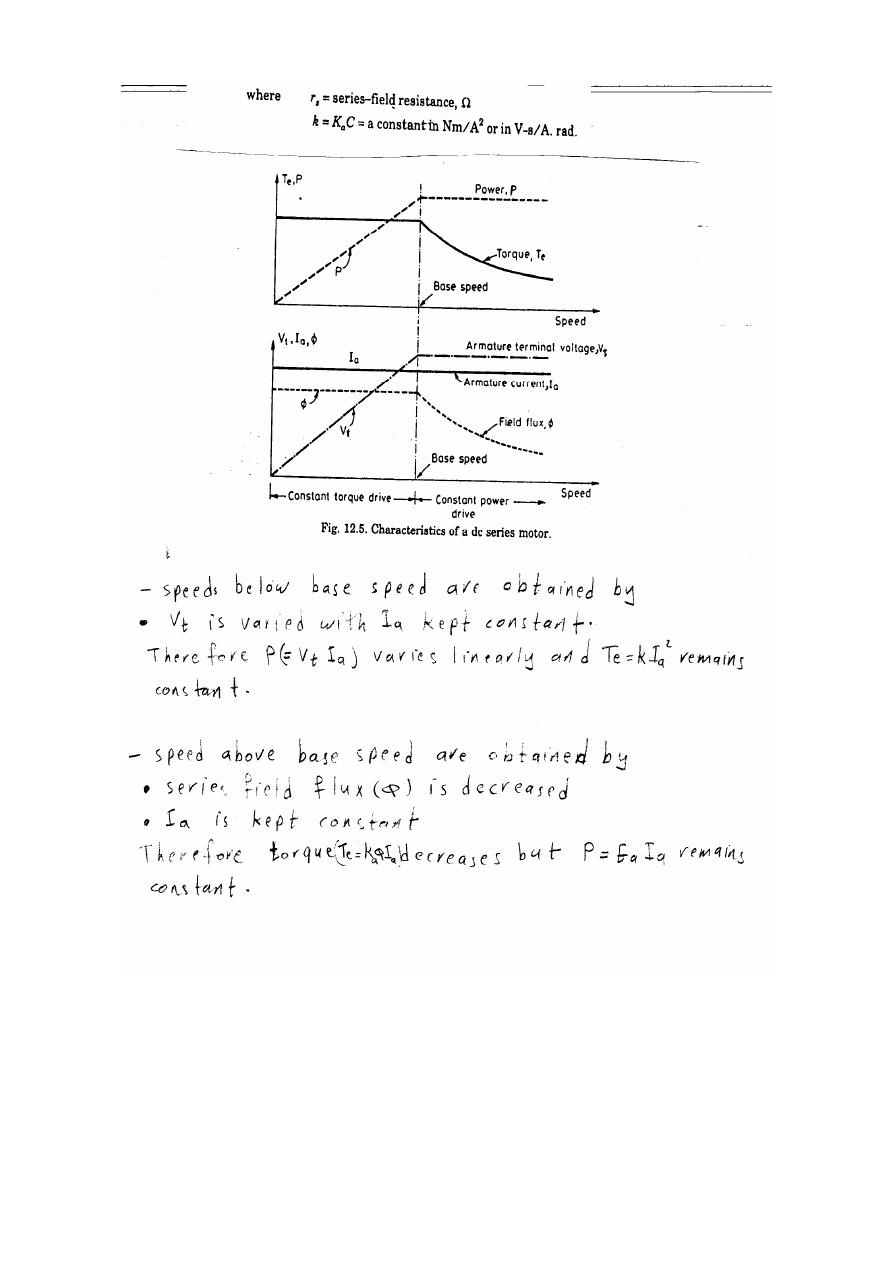 where r_s = series–field resistance, Ω
k = K_a C = a constant in Nm/A² or in V-s/A. rad.
T_e, P
Power, P
Torque, T_e
P
Base speed
Speed
V_t, I_a, ϕ
Armature terminal voltage, V_t
I_a
Armature current, I_a
ϕ
Field flux, ϕ
V_t
Base speed
Constant torque drive Constant power Speed
drive
Fig. 12.5. Characteristics of a dc series motor.
- speeds below base speed are obtained by
• V_t is varied with I_a kept constant.
Therefore P(= V_t I_a) varies linearly and T_e = k I_a² remains
constant.
- speed above base speed are obtained by
• series field flux (ϕ) is decreased
• I_a is kept constant
Therefore torque (T_e = K_a ϕ I_a) decreases but P = E_a I_a remains
constant.